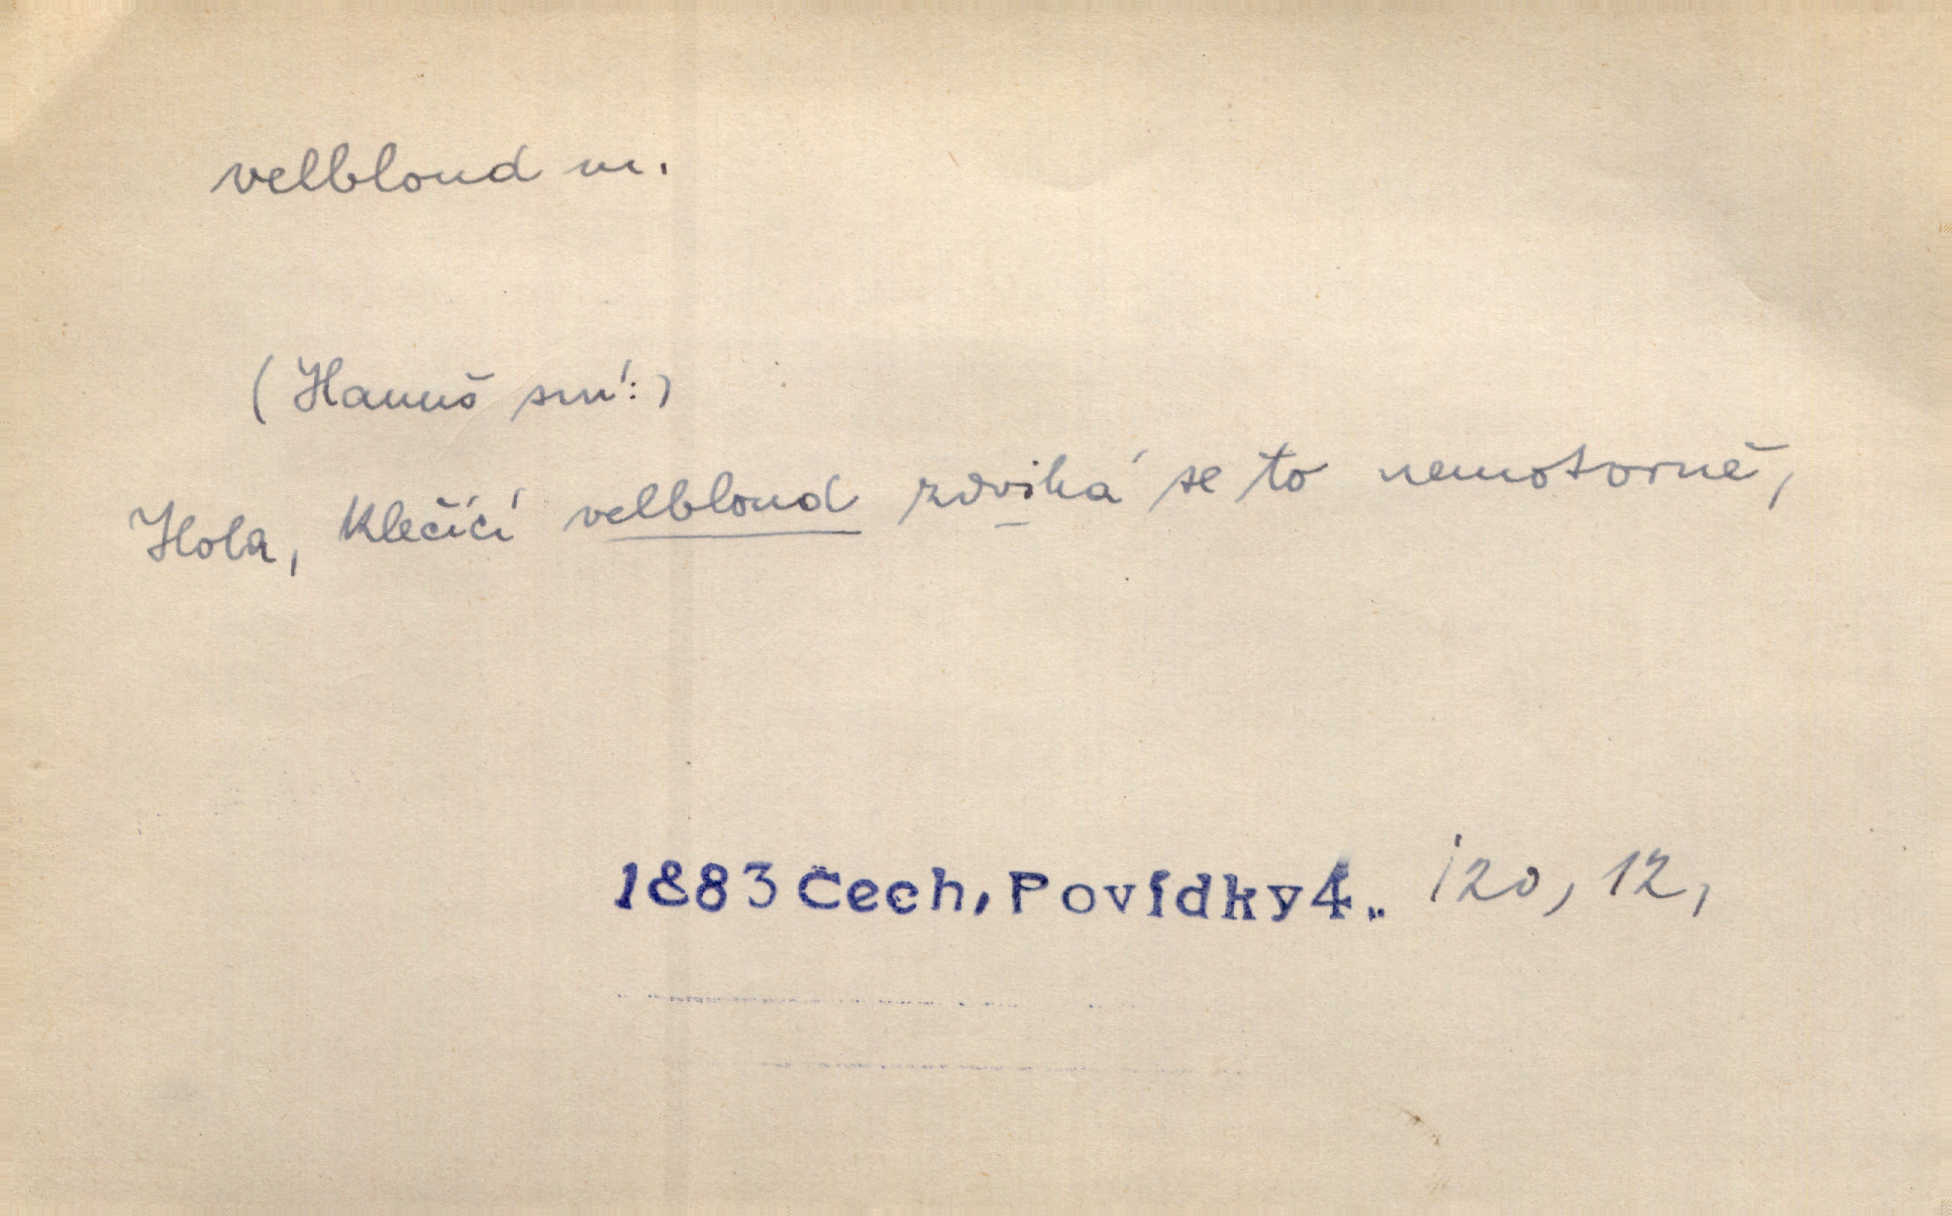 velbloud m.
(Hanuš sní:)
Hola, klečící velbloud zdvihá se to nemotorně,
1883 Čech, Povídky 4.. 120, 12,